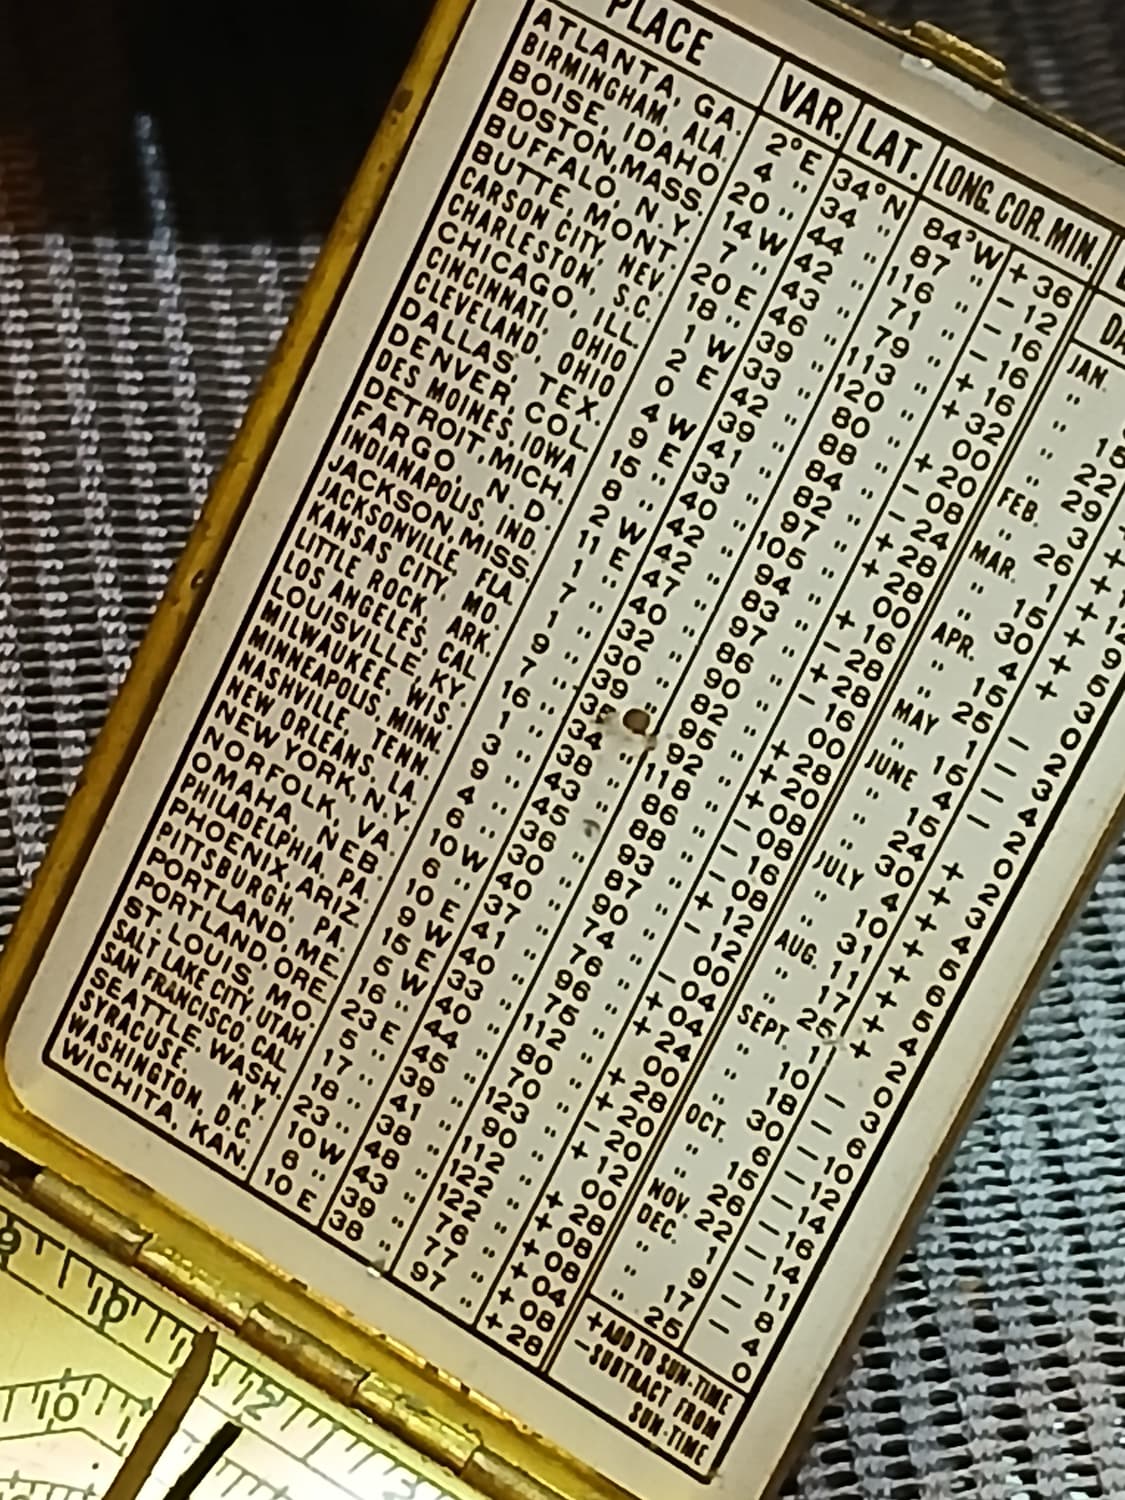 PLACE VAR. LAT. LONG. COR. MIN.
ATLANTA, GA. 2°E 34°N 84°W +36
BIRMINGHAM, ALA. 4 " 34 " 87 " -12
BOISE, IDAHO 20 " 44 " 116 " -16
BOSTON, MASS. 14 W 42 " 71 " -16
BUFFALO, N.Y. 7 " 43 " 79 " +16
BUTTE, MONT. 20 E 46 " 113 " +32
CARSON CITY, NEV. 18 " 39 " 120 " 00
CHARLESTON, S.C. 1 W 33 " 80 " +20
CHICAGO, ILL. 2 E 42 " 88 " -08
CINCINNATI, OHIO 0 39 " 84 " -24
CLEVELAND, OHIO 4 W 41 " 82 " +28
DALLAS, TEX. 9 E 33 " 97 " +28
DENVER, COL. 15 " 40 " 105 " 00
DES MOINES, IOWA 8 " 42 " 94 " +16
DETROIT, MICH. 2 W 42 " 83 " -28
FARGO, N.D. 11 E 47 " 97 " +28
INDIANAPOLIS, IND. 1 " 40 " 86 " -16
JACKSON, MISS. 7 " 32 " 90 " 00
JACKSONVILLE, FLA. 1 " 30 " 82 " +28
KANSAS CITY, MO. 9 " 39 " 95 " +20
LITTLE ROCK, ARK. 7 " 35 92 " +08
LOS ANGELES, CAL. 16 " 34 " 118 " -08
LOUISVILLE, KY. 1 " 38 " 86 " -16
MILWAUKEE, WIS. 3 " 43 " 88 " -08
MINNEAPOLIS, MINN. 9 " 45 " 93 " +12
NASHVILLE, TENN. 4 " 36 " 87 " -12
NEW ORLEANS, LA. 6 " 30 " 90 " 00
NEW YORK, N.Y. 10 W 40 " 74 " -04
NORFOLK, VA. 6 " 37 " 76 " +04
OMAHA, NEB. 10 E 41 " 96 " +24
PHILADELPHIA, PA. 9 W 40 " 75 " 00
PHOENIX, ARIZ. 15 E 33 " 112 " +28
PITTSBURGH, PA. 5 W 40 " 80 " +20
PORTLAND, ME. 16 " 44 " 70 " -20
PORTLAND, ORE. 23 E 45 " 123 " +12
ST. LOUIS, MO. 5 " 39 " 90 " 00
SALT LAKE CITY, UTAH 17 " 41 " 112 " +28
SAN FRANCISCO, CAL. 18 " 38 " 122 " +08
SEATTLE, WASH. 23 " 48 " 122 " +08
SYRACUSE, N.Y. 10 W 43 " 76 " +04
WASHINGTON, D.C. 6 " 39 " 77 " +08
WICHITA, KAN. 10 E 38 " 97 " +28
JAN.
"
" 15
" 22
" 29
FEB. 3 +
" 26 +
MAR. 1 +12
" 15 + 9
" 30 + 5
APR. 4 + 3
" 15 0
" 25 - 2
MAY 1 - 3
" 15 - 4
JUNE 4 - 2
" 15 0
" 24 + 2
" 30 + 3
JULY 4 + 4
" 10 + 5
" 31 + 6
AUG. 11 + 5
" 17 + 4
" 25 + 2
SEPT. 1 0
" 10 - 3
" 18 - 6
" 30 -10
OCT. 6 -12
" 15 -14
" 26 -16
NOV. 22 -14
DEC. 1 -11
" 9 - 8
" 17 - 4
" 25 0
+ADD TO SUN-TIME
-SUBTRACT FROM
SUN-TIME
9 10
10 2